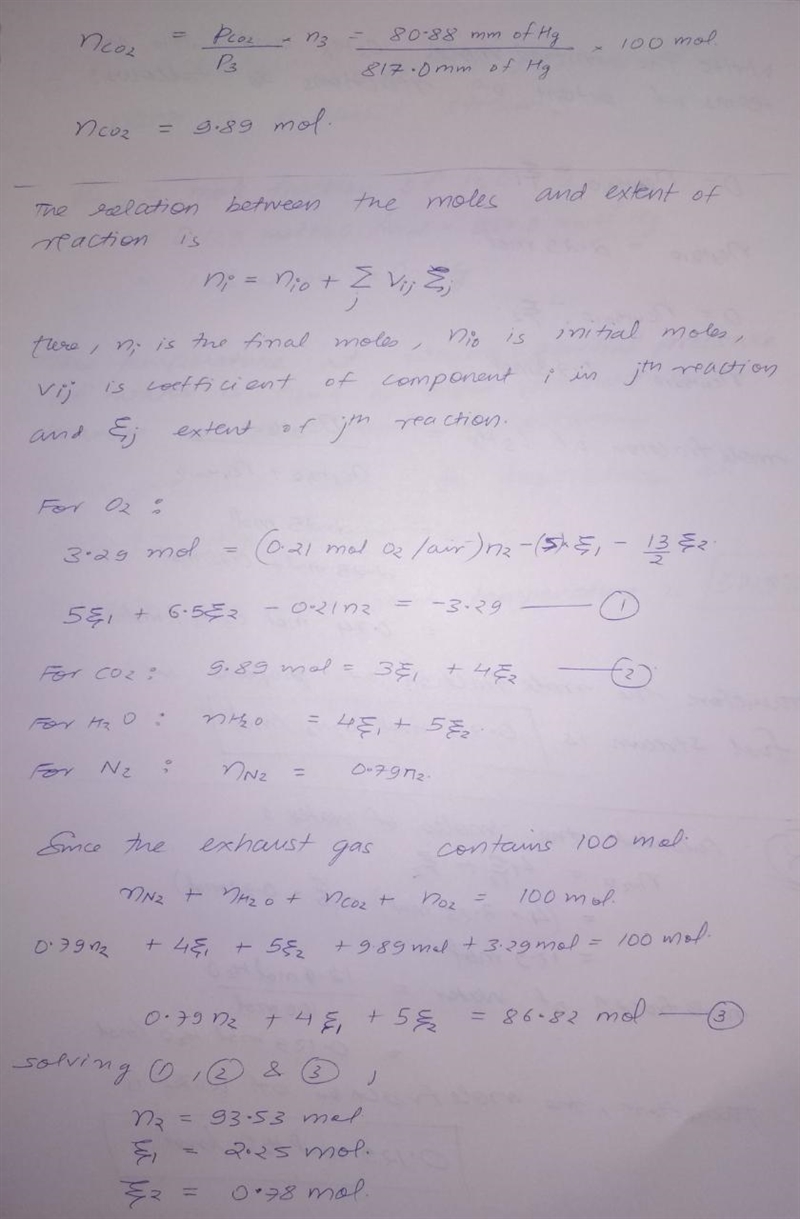 nCO2 = PCO2/P3 × n3 = 80.88 mm of Hg/817.0 mm of Hg × 100 mol.
nCO2 = 9.89 mol.
The relation between the moles and extent of
reaction is
ni = nio + Σj Vij ξj
Here, ni is the final moles, nio is initial moles,
Vij is coefficient of component i in jth reaction
and ξj extent of jth reaction.
For O2 :
3.29 mol = (0.21 mol O2/air)n2 - (5)ξ1 - 13/2 ξ2.
5ξ1 + 6.5ξ2 - 0.21n2 = -3.29 —— ①
For CO2 : 9.89 mol = 3ξ1 + 4ξ2 —— ②
For H2O : nH2O = 4ξ1 + 5ξ2.
For N2 : nN2 = 0.79n2.
Since the exhaust gas contains 100 mol.
nN2 + nH2O + nCO2 + nO2 = 100 mol.
0.79n2 + 4ξ1 + 5ξ2 + 9.89 mol + 3.29 mol = 100 mol.
0.79n2 + 4ξ1 + 5ξ2 = 86.82 mol —— ③
solving ①, ② & ③,
n2 = 93.53 mol
ξ1 = 2.25 mol.
ξ2 = 0.78 mol.